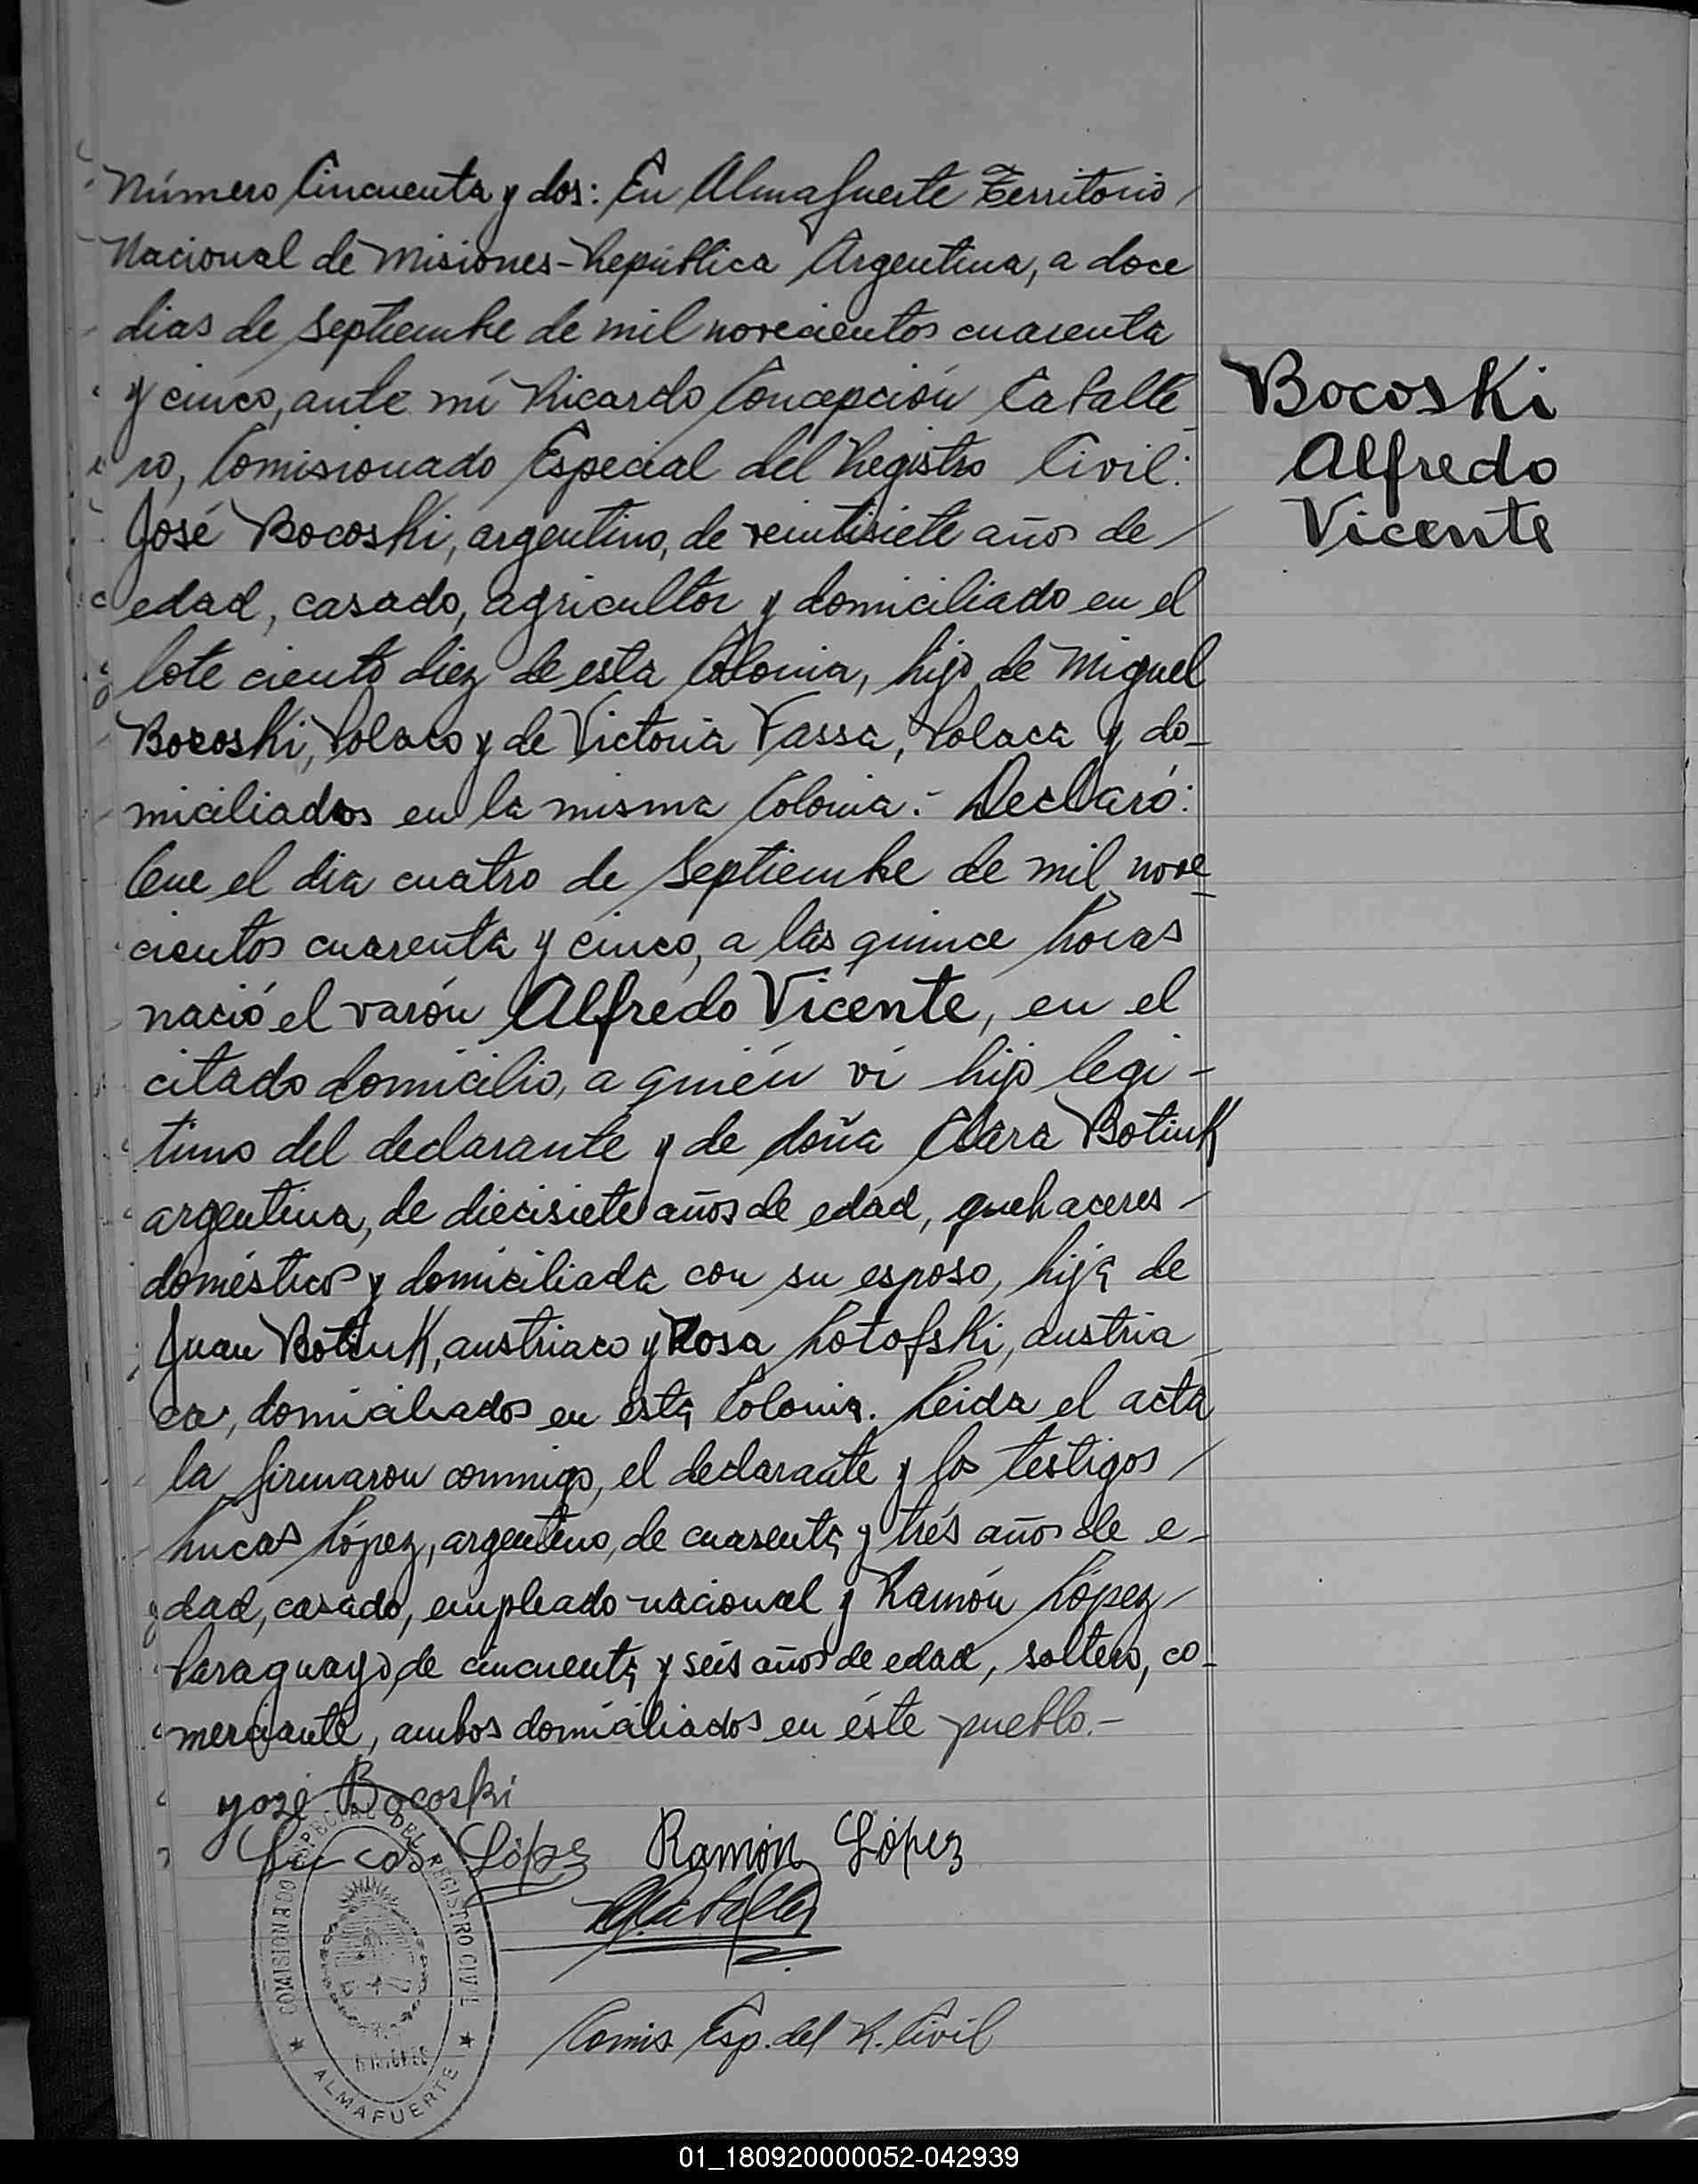 Número Cincuenta y dos: En Almafuerte Territorio
Nacional de Misiones-República Argentina, a doce
dias de Septiembre de mil novecientos cuarenta
y cinco, ante mi Ricardo Concepción Caballe-
ro, Comisionado Especial del Registro Civil:
José Bocoski, argentino, de veintisiete años de
edad, casado, agricultor y domiciliado en el
lote ciento diez de esta Colonia, hijo de Miguel
Bocoski, Polaco y de Victoria Vassa, Polaca y do-
miciliados en la misma Colonia.- Declaró:
Que el dia cuatro de Septiembre de mil nove-
cientos cuarenta y cinco, a las quince horas
nació el varón Alfredo Vicente, en el
citado domicilio, a quién vi hijo legi-
timo del declarante y de doña Clara Botiuk
argentina, de diecisiete años de edad, quehaceres
doméstico y domiciliada con su esposo, hija de
Juan Botiuk, austriaco y Rosa Lotofski, austria-
ca, domiciliados en esta Colonia. Leida el acta
la firmaron conmigo, el declarante y los testigos
Lucas López, argentino, de cuarenta y trés años de e-
dad, casado, empleado nacional y Ramón López
Paraguayo, de cincuenta y seis años de edad, soltero, co-
merciante, ambos domiciliados en éste pueblo.-
Bocoski
Alfredo
Vicente
yosé Bocoski
Lucas López Ramón López
Comis. Esp. del R. Civil
COMISIONADO ESPECIAL DEL REGISTRO CIVIL
MISIONES
★ ALMAFUERTE ★
01_180920000052-042939